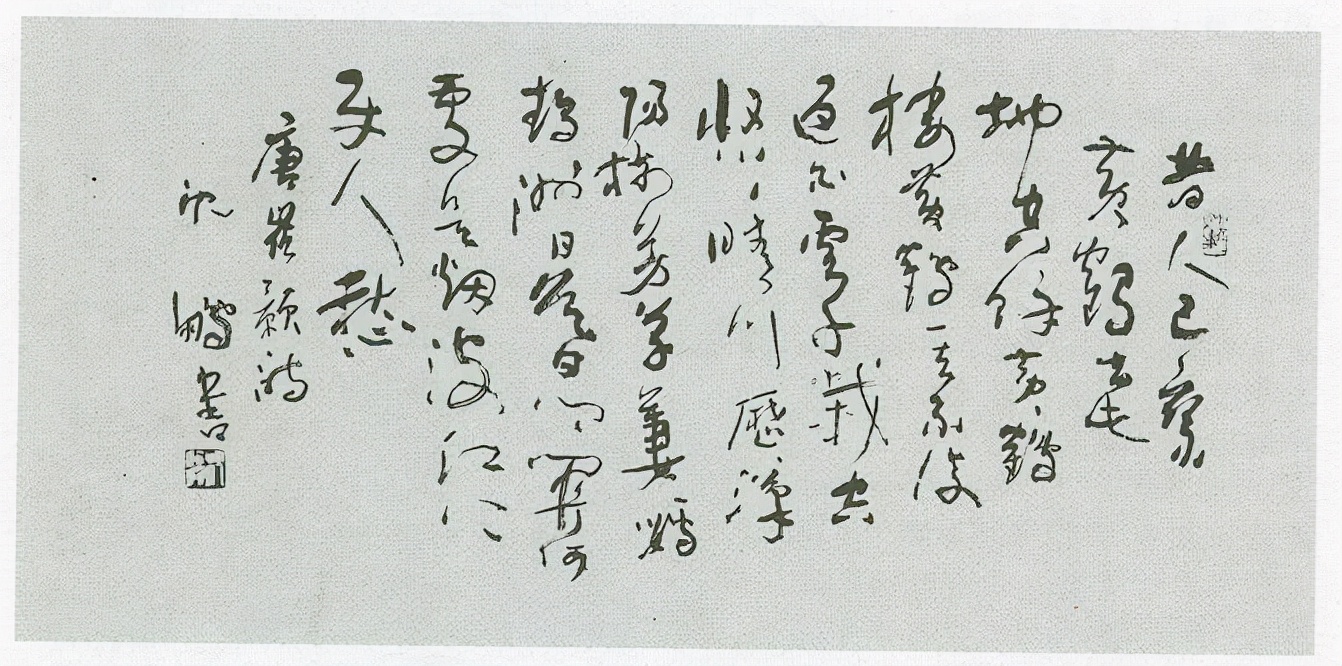 昔人已乘
黃鶴去此
地空餘黃鶴
樓黃鶴一去不復
返白雲千載空
悠〻晴川歷漢
陽樹芳草萋〻鸚
鵡洲日暮鄉關何
處是烟波江上
使人愁
唐崔顥詩
沈鵬書